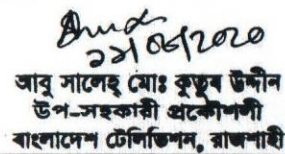 ২৯/০৬/২০২০
আবু সালেহ মোঃ কুতুব উদ্দীন
উপ-সহকারী প্রকৌশলী
বাংলাদেশ টেলিভিশন, রাজশাহী